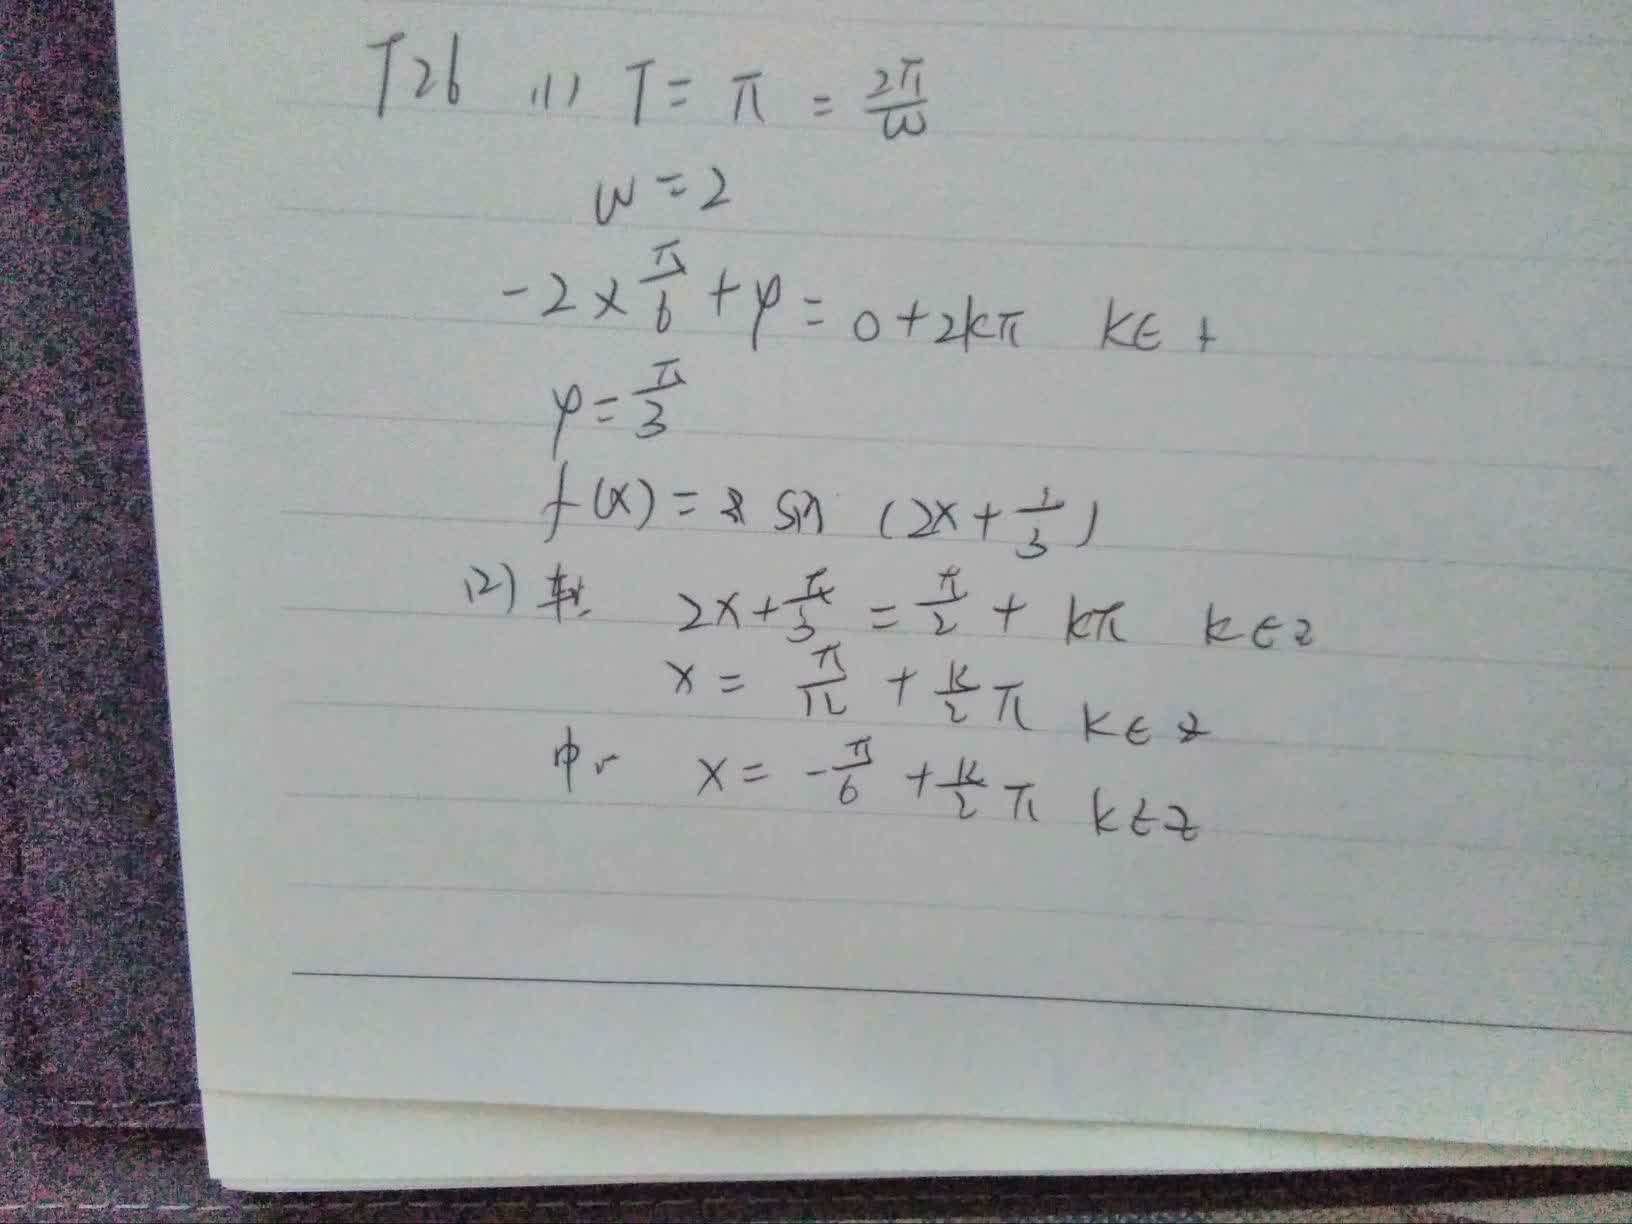 T26 (1) T = π = 2π/ω
ω = 2
-2 × π/6 + φ = 0 + 2kπ k∈
φ = π/3
f(x) = sin (2x + /3)
(2) 轴. 2x + π/3 = π/2 + kπ k∈z
x = π/12 + k/2 π k∈z
中 x = -π/6 + k/2 π k∈z